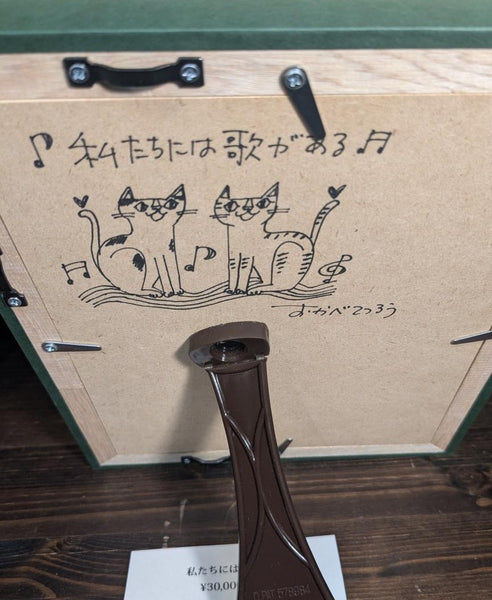 ♪ 私たちには歌がある ♬
おかべてつろう
私たちには
¥30,00
D.PAT 578984